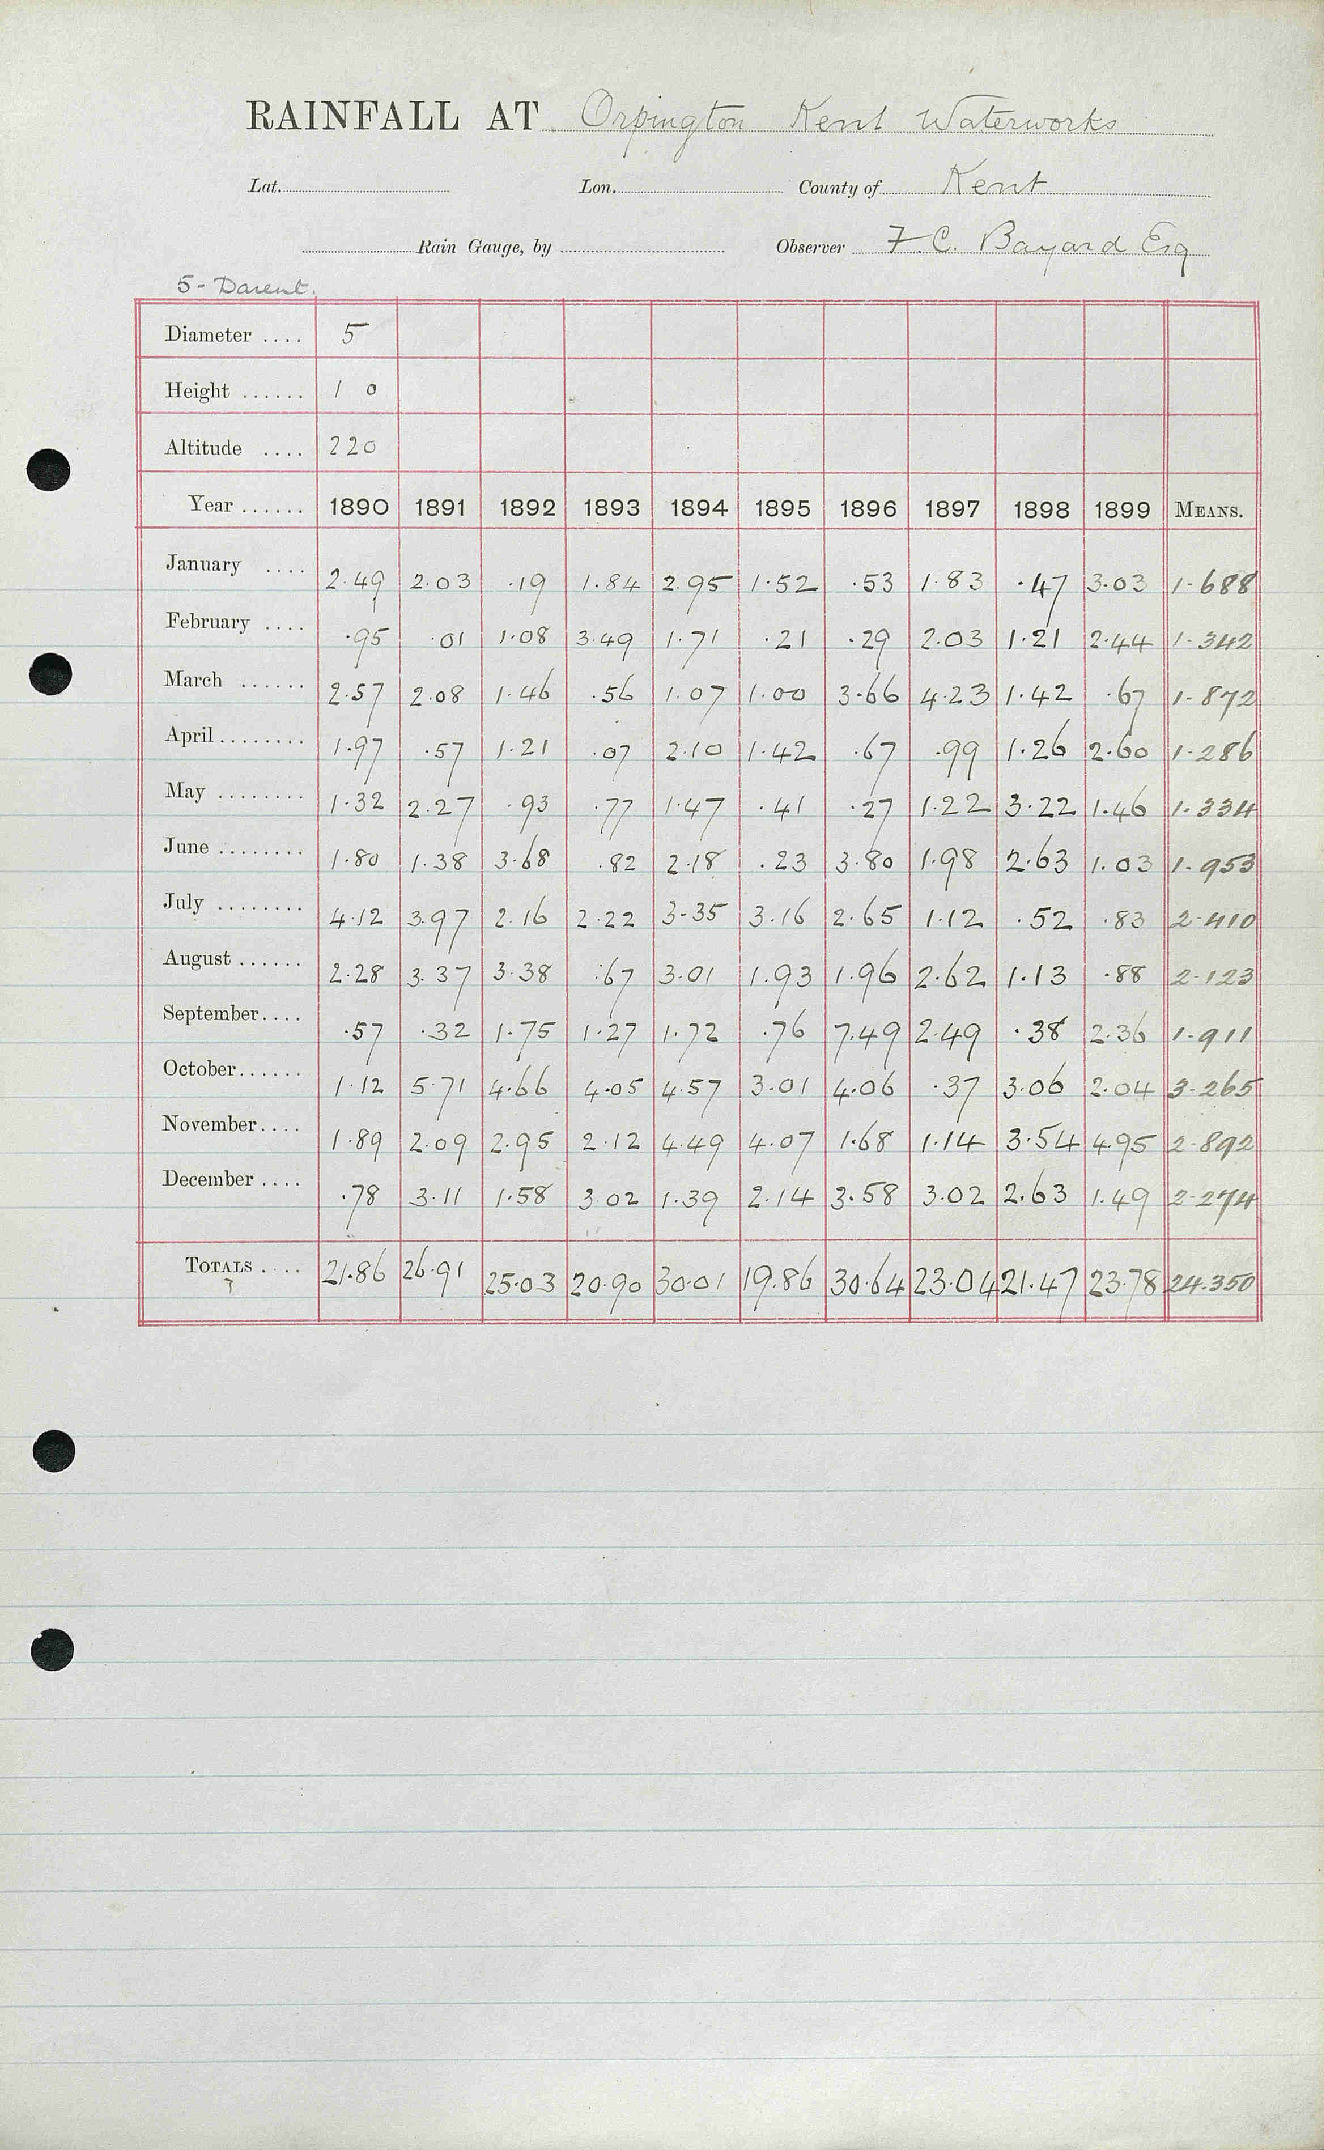 RAINFALL AT Orpington Kent Waterworks
Lat. Lon. County of Kent
Rain Gauge, by Observer F. C. Bayard Esq
5 - Darent.
Diameter .... 5
Height ...... 1 0
Altitude .... 220
Year ...... 1890 1891 1892 1893 1894 1895 1896 1897 1898 1899 MEANS.
January .... 2.49 2.03 .19 1.84 2.95 1.52 .53 1.83 .47 3.03 1.688
February .... .95 .01 1.08 3.49 1.71 .21 .29 2.03 1.21 2.44 1.342
March ...... 2.57 2.08 1.46 .56 1.07 1.00 3.66 4.23 1.42 .67 1.872
April ........ 1.97 .57 1.21 .07 2.10 1.42 .67 .99 1.26 2.60 1.286
May ........ 1.32 2.27 .93 .77 1.47 .41 .27 1.22 3.22 1.46 1.334
June ........ 1.80 1.38 3.68 .82 2.18 .23 3.80 1.98 2.63 1.03 1.953
July ........ 4.12 3.97 2.16 2.22 3.35 3.16 2.65 1.12 .52 .83 2.410
August ...... 2.28 3.37 3.38 .67 3.01 1.93 1.96 2.62 1.13 .88 2.123
September .... .57 .32 1.75 1.27 1.72 .76 7.49 2.49 .38 2.36 1.911
October ...... 1.12 5.71 4.66 4.05 4.57 3.01 4.06 .37 3.06 2.04 3.265
November .... 1.89 2.09 2.95 2.12 4.49 4.07 1.68 1.14 3.54 4.95 2.892
December .... .78 3.11 1.58 3.02 1.39 2.14 3.58 3.02 2.63 1.49 2.274
TOTALS .... 21.86 26.91 25.03 20.90 30.01 19.86 30.64 23.04 21.47 23.78 24.350